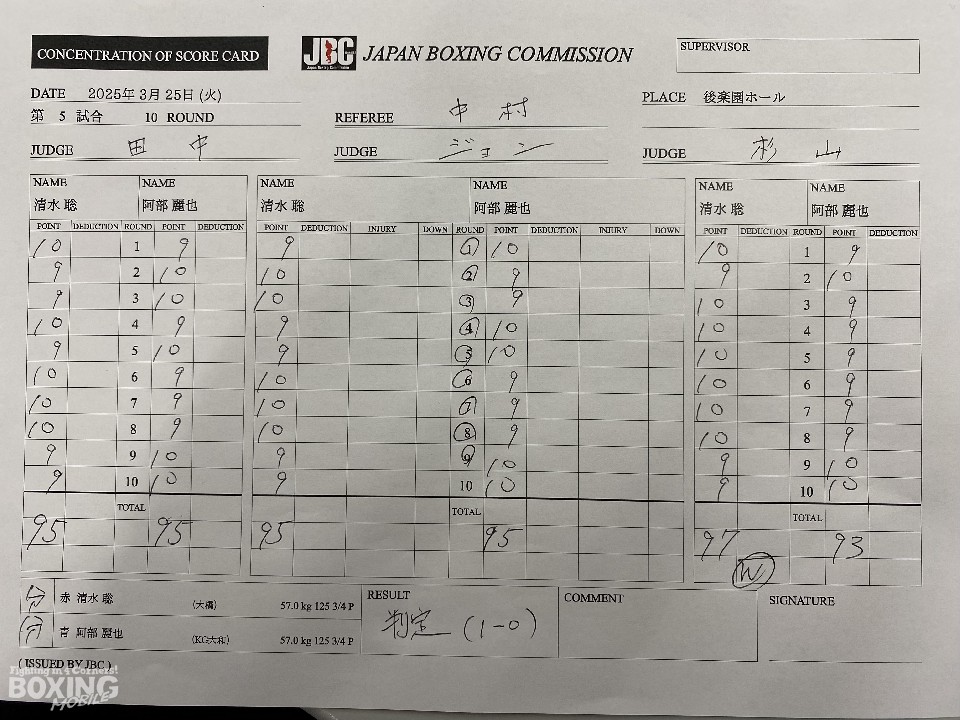 CONCENTRATION OF SCORE CARD
JBC JAPAN BOXING COMMISSION
Japan Boxing Commission
SUPERVISOR
DATE 2025年 3月 25日 (火)
PLACE 後楽園ホール
第 5 試合 10 ROUND
REFEREE 中村
JUDGE 田中
JUDGE ジョン
JUDGE 杉山
NAME NAME NAME NAME NAME NAME
清水 聡 阿部 麗也 清水 聡 阿部 麗也 清水 聡 阿部 麗也
POINT DEDUCTION ROUND POINT DEDUCTION POINT DEDUCTION INJURY DOWN ROUND POINT DEDUCTION INJURY DOWN POINT DEDUCTION ROUND POINT DEDUCTION
10 1 9 9 1 10 10 1 9
9 2 10 10 2 9 9 2 10
9 3 10 10 3 9 10 3 9
10 4 9 9 4 10 10 4 9
9 5 10 9 5 10 10 5 9
10 6 9 10 6 9 10 6 9
10 7 9 10 7 9 10 7 9
10 8 9 10 8 9 10 8 9
9 9 10 9 9 10 9 9 10
9 10 10 9 10 10 9 10 10
TOTAL TOTAL TOTAL
95 95 95 95 97 93
W
赤 清水 聡 (大橋) 57.0 kg 125 3/4 P
青 阿部 麗也 (KG大和) 57.0 kg 125 3/4 P
RESULT
判定 (1-0)
COMMENT
SIGNATURE
( ISSUED BY JBC )
Fighting in 4 Corners!
BOXING
MOBILE